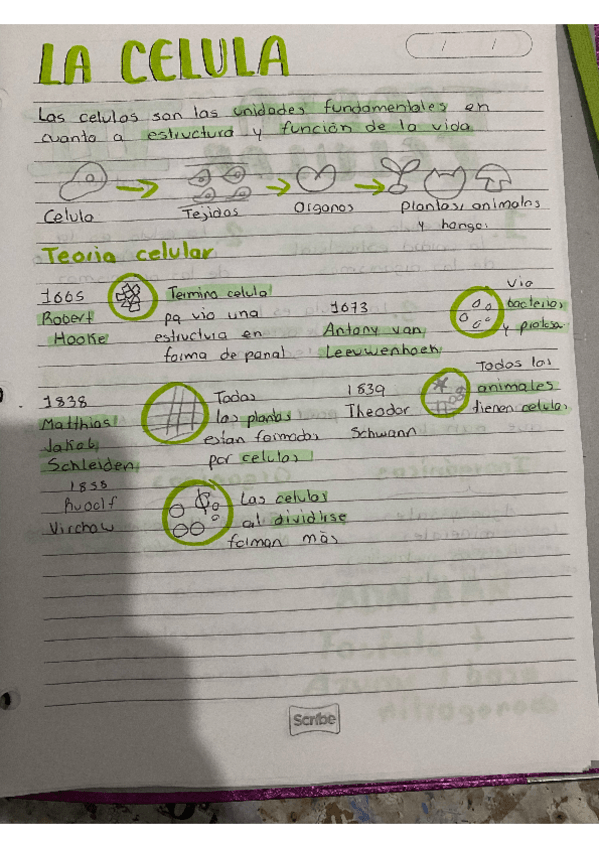 LA CELULA
Las celulas son las unidades fundamentales en
cuanto a estructura y función de la vida
Celula
Tejidos
Organos
plantas, animales
y hongos
Teoria celular
1665
Robert
Hooke
Termino celula
pq vio una
estructura en
forma de panal
1673
Antony van
Leeuwenhoek
vio
bacterias
y protozoa
1838
Matthias
Jakob
Schleiden
Todas
las plantas
estan formadas
por celulas
1839
Theodor
Schwann
Todos los
animales
tienen celulas
1858
Rudolf
Virchow
Las celulas
al dividirse
forman más
Scribe